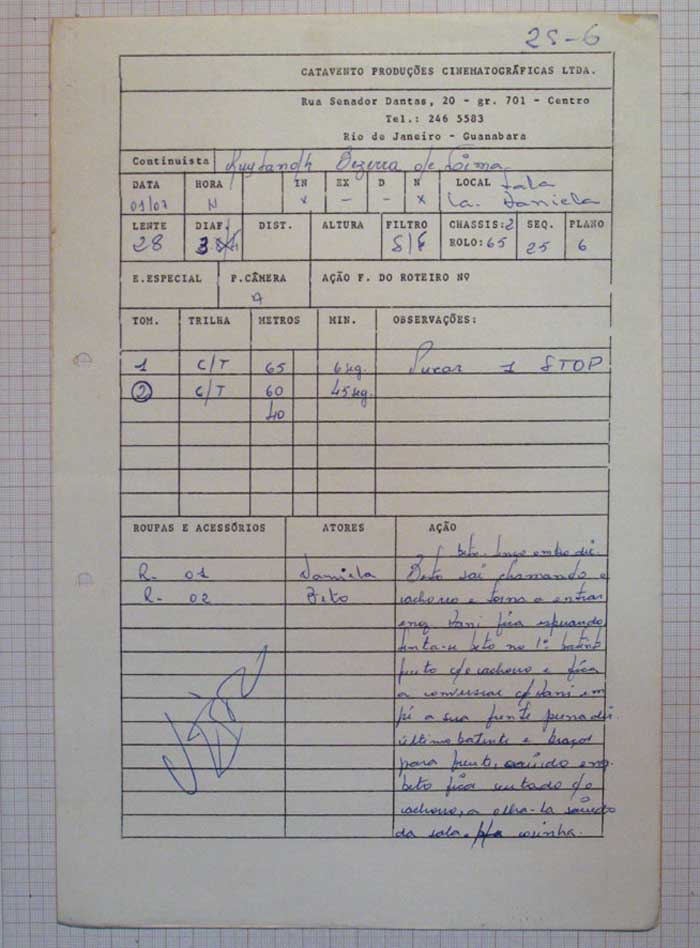 25-6
CATAVENTO PRODUÇÕES CINEMATOGRÁFICAS LTDA.
Rua Senador Dantas, 20 - gr. 701 - Centro
Tel.: 246 5583
Rio de Janeiro - Guanabara
Continuista Bezerra de Lima
DATA HORA IN EX D N LOCAL Sala
01/07 N x - - x Ca. Daniela
LENTE DIAF. DIST. ALTURA FILTRO CHASSIS:2 SEQ. PLANO
28 S/F ROLO:65 25 6
E.ESPECIAL P.CÂMERA AÇÃO F. DO ROTEIRO Nº
TOM. TRILHA METROS MIN. OBSERVAÇÕES:
1 C/T 65 6seg. Puxar 1 STOP
2 C/T 60 45seg.
40
ROUPAS E ACESSÓRIOS ATORES AÇÃO
beto
R- 01 Daniela Beto sai chamando o
R- 02 Beto cachorro e torna a entrar
enq. Dani fica esperando
senta-se beto no 1º batente
perto c/o cachorro e fica
a conversar c/Dani em
pé a sua frente
último batente e braços
para frente, saindo enq.
beto fica sentado c/o
cachorro, a olha-la saindo
da sala p/a cosinha.